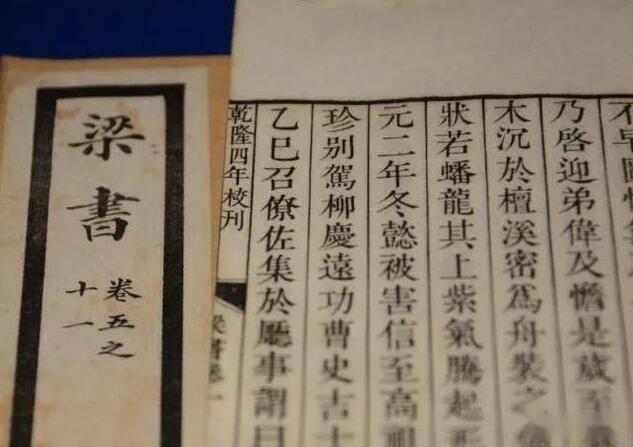 梁書
卷五之
十一
不早圖
乃啓迎弟偉及憺是歲至
木沉於檀溪密爲舟裝之
狀若蟠龍其上紫氣騰起形
元二年冬懿被害信至高祖
珍別駕柳慶遠功曹史吉士
乙巳召僚佐集於廳事謂曰
乾隆四年校刊
梁書卷一